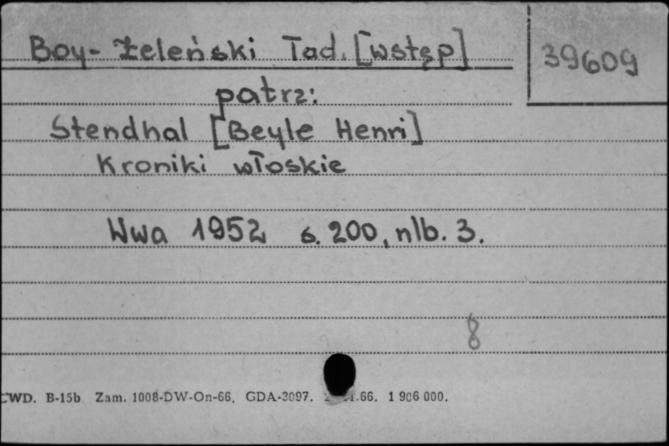 Boy-Żeleński Tad. [wstęp]
39609
patrz:
Stendhal [Beyle Henri]
Kroniki włoskie
Wwa 1952 s. 200, nlb. 3.
8
CWD. B-15b Zam. 1008-DW-On-66. GDA-3097. .66. 1 906 000.